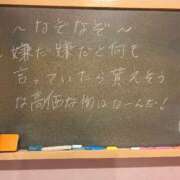 ～なぞなぞ～
嫌だ嫌だと何も
言っていたら貰えそう
な高価な物はなーんだ!